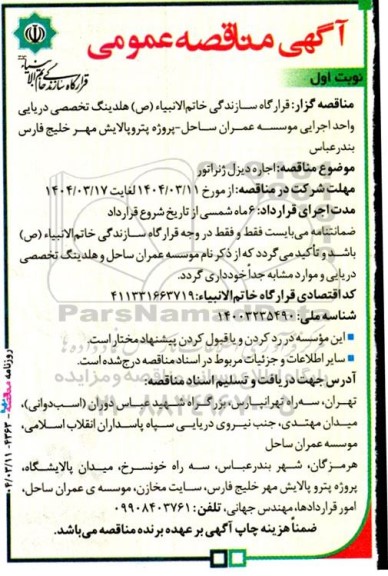 آگهی مناقصه عمومی
نوبت اول
قرارگاه سازندگی خاتم الانبیاء
مناقصه گزار: قرارگاه سازندگی خاتم‌الانبیاء (ص) هلدینگ تخصصی دریایی
واحد اجرایی موسسه عمران ساحل-پروژه پتروپالایش مهر خلیج فارس
بندرعباس
موضوع مناقصه: اجاره دیزل ژنراتور
مهلت شرکت در مناقصه: از مورخ ۱۴۰۴/۰۳/۱۱ لغایت ۱۴۰۴/۰۳/۱۷
مدت اجرای قرارداد: ۶ ماه شمسی از تاریخ شروع قرارداد
ضمانتنامه می‌بایست فقط و فقط در وجه قرارگاه سازندگی خاتم‌الانبیاء (ص)
باشد و تأکید می‌گردد که از ذکر نام موسسه عمران ساحل و هلدینگ تخصصی
دریایی و موارد مشابه جداً خودداری گردد.
کد اقتصادی قرارگاه خاتم‌الانبیاء: ۴۱۱۳۳۱۶۶۳۷۱۹
شناسه ملی: ۱۴۰۰۳۲۳۵۴۹۰
این مؤسسه در رد کردن و یا قبول کردن پیشنهاد مختار است.
سایر اطلاعات و جزئیات مربوط در اسناد مناقصه درج شده است.
آدرس جهت دریافت و تسلیم اسناد مناقصه:
تهران، سه‌راه تهرانپارس، بزرگراه شهید عباس دوران (اسب‌دوانی)،
میدان مهتدی، جنب نیروی دریایی سپاه پاسداران انقلاب اسلامی،
موسسه عمران ساحل
هرمزگان، شهر بندرعباس، سه راه خونسرخ، میدان پالایشگاه،
پروژه پترو پالایش مهر خلیج فارس، سایت مخازن، موسسه ی عمران ساحل،
امور قراردادها، مهندس جهانی، تلفن: ۰۹۹۰۸۴۰۳۷۶۱
ضمناً هزینه چاپ آگهی بر عهده برنده مناقصه می‌باشد.
روزنامه مناقصه ۴۳۶۳-۰۴/۰۳/۱۱
ParsNamadData